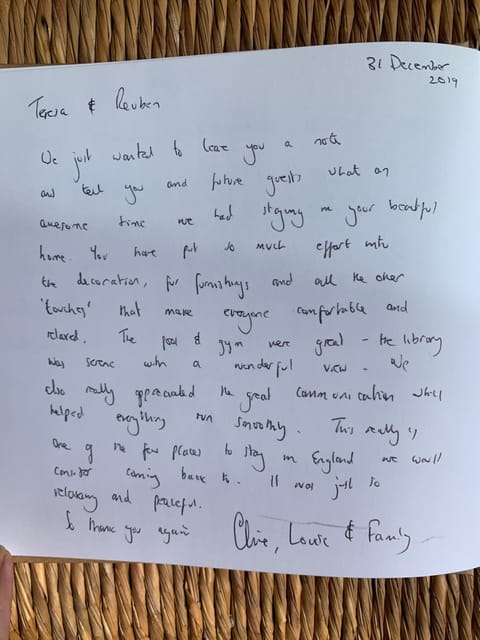 31 December
2019
Teresa & Reuben
We just wanted to leave you a note
and tell you and future guests what an
awesome time we had staying in your beautiful
home. You have put so much effort into
the decoration, fur furnishings and all the other
'touches' that make everyone comfortable and
relaxed. The pool & gym were great - the library
was serene with a wonderful view. We
also really appreciated the great communication which
helped everything run smoothly. This really is
one of the few places to stay in England we would
consider coming back to. It was just so
relaxing and peaceful.
So thank you again
Clive, Louise & Family